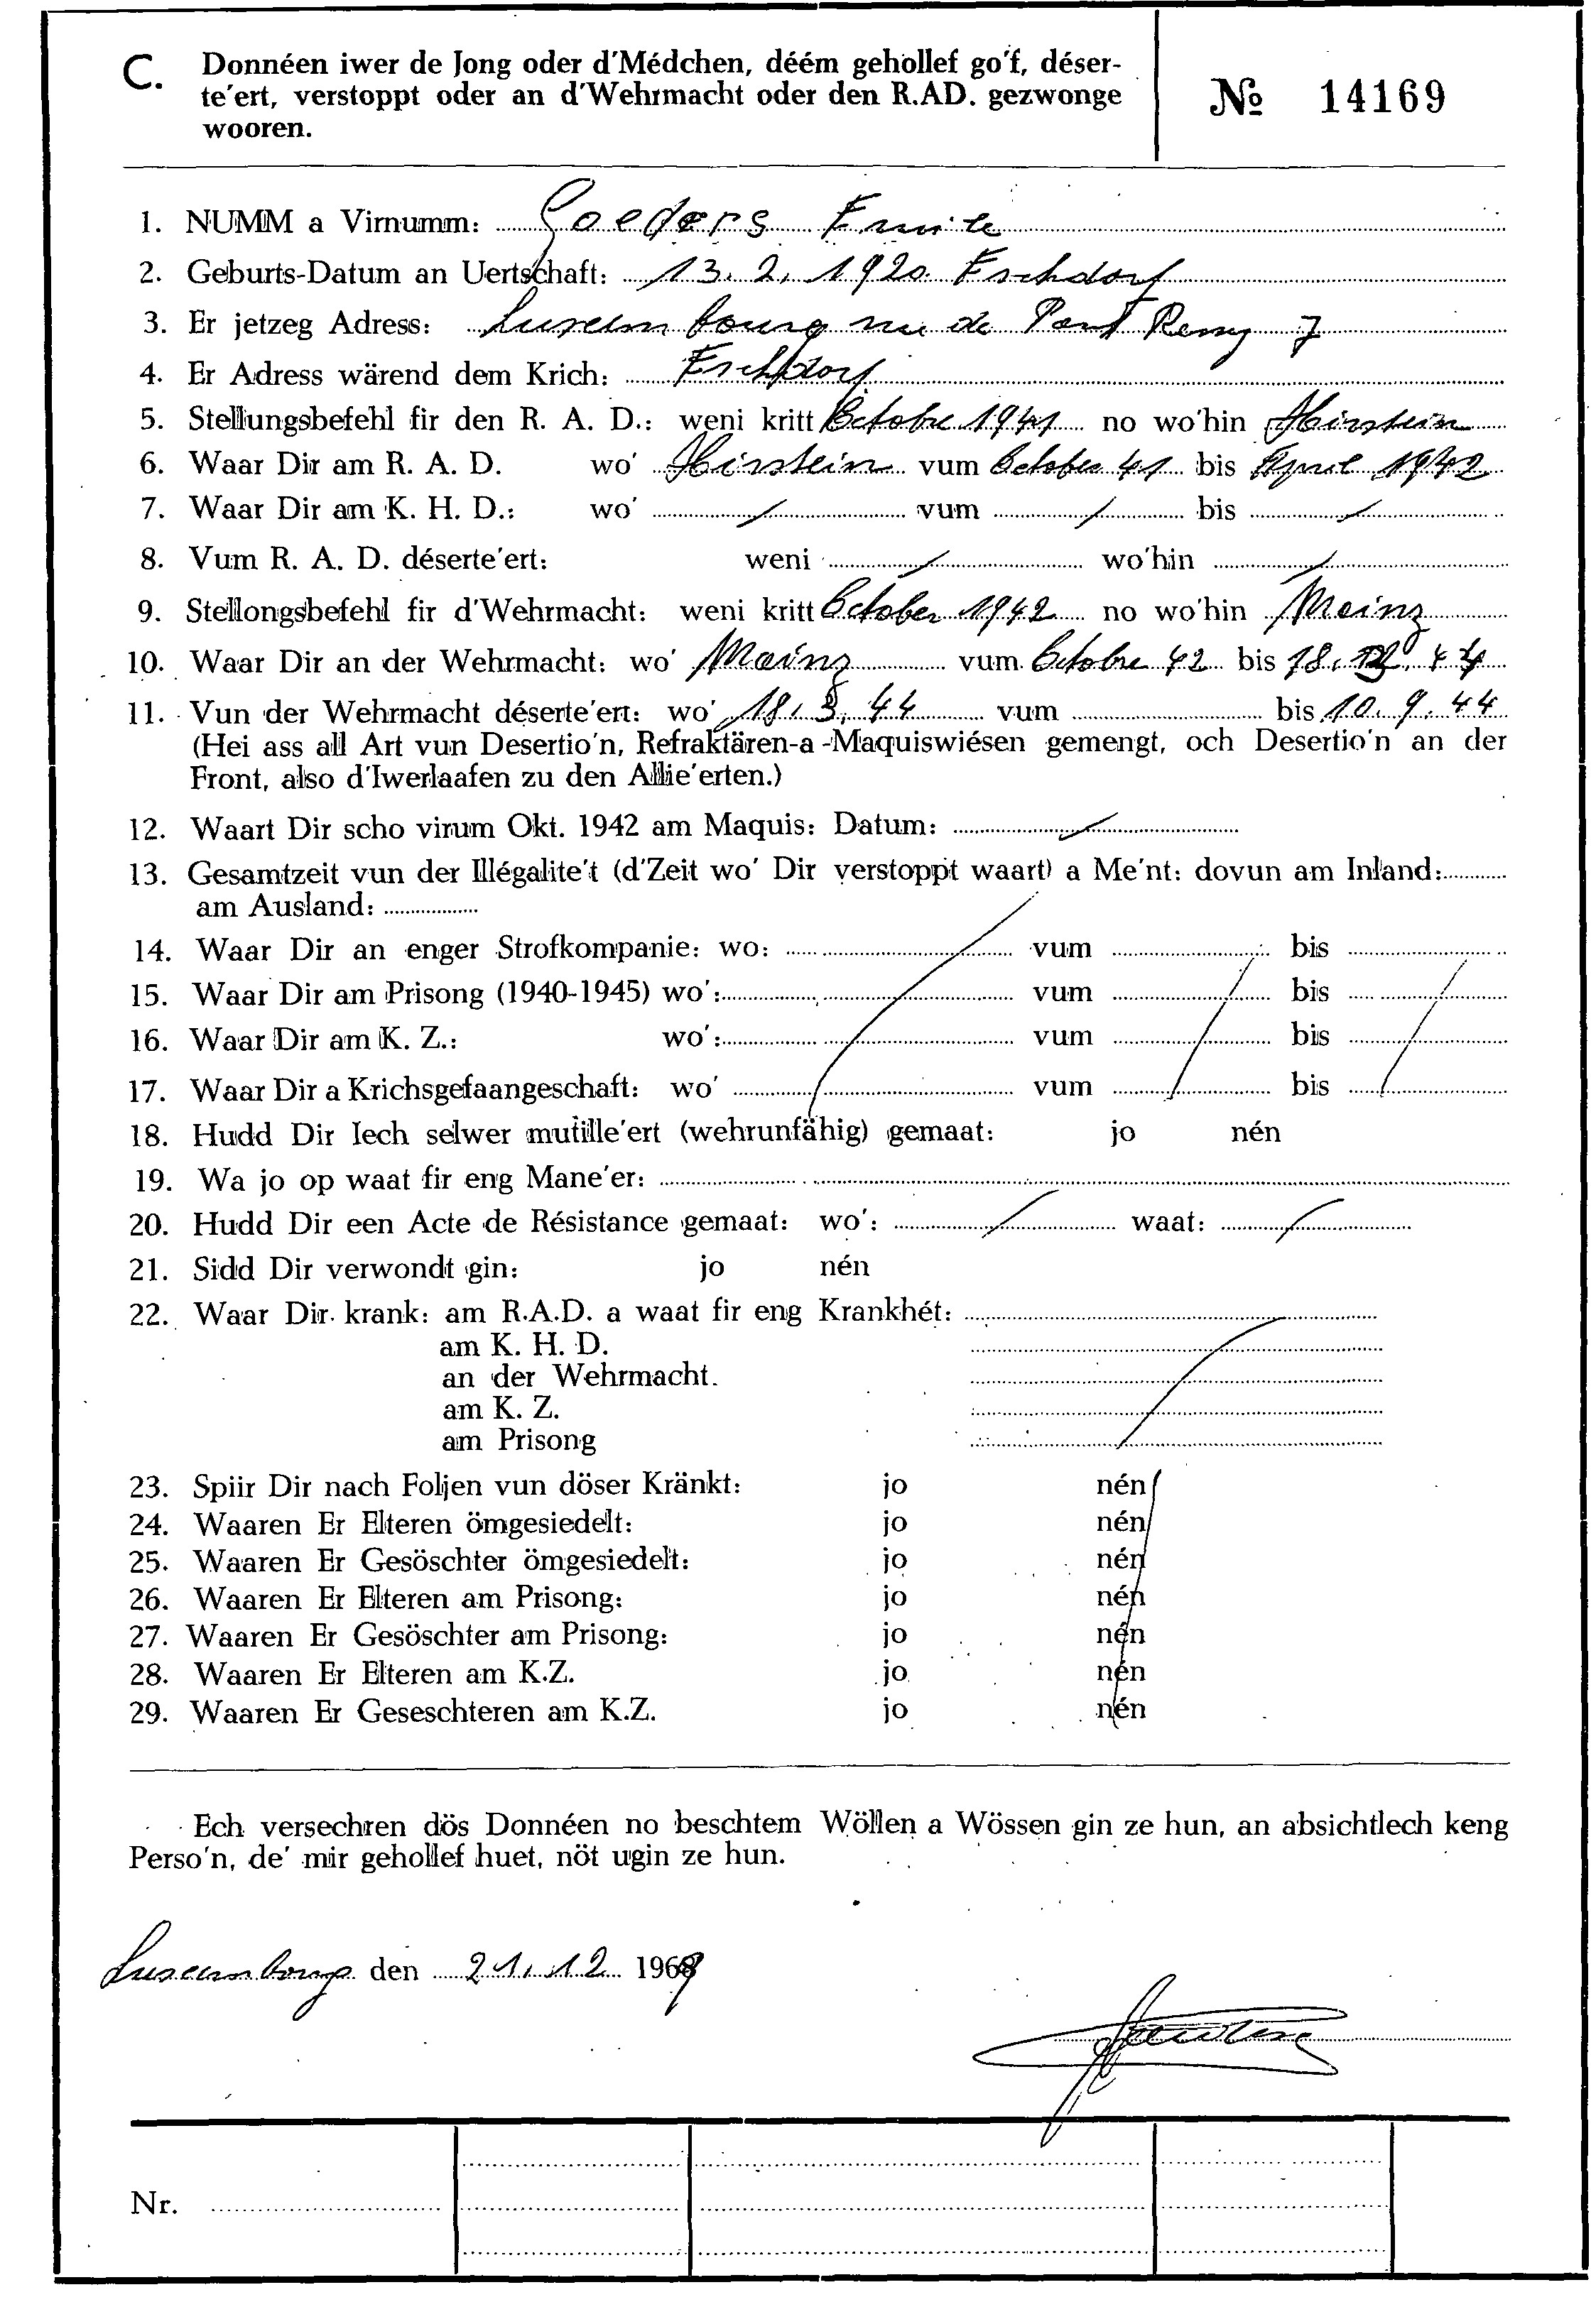 C. Donnéen iwer de Jong oder d'Médchen, déém gehollef go'f, déser-
te'ert, verstoppt oder an d'Wehrmacht oder den R.AD. gezwonge
wooren.
№ 14169
1. NUMM a Virnumm: Goeders Emile
2. Geburts-Datum an Uertschaft: 13. 2. 1920 Eschdorf
3. Er jetzeg Adress: Luxembourg rue du Pont Remy 7
4. Er Adress wärend dem Krich: Eschdorf
5. Stellungsbefehl fir den R. A. D.: weni kritt Octobre 1941 no wo'hin Hirstein
6. Waar Dir am R. A. D. wo' Hirstein vum October 41 bis April 1942
7. Waar Dir am K. H. D.: wo' / vum / bis /
8. Vum R. A. D. déserte'ert: weni / wo'hin /
9. Stellongsbefehl fir d'Wehrmacht: weni kritt October 1942 no wo'hin Mainz
10. Waar Dir an der Wehrmacht: wo' Mainz vum Octobre 42 bis 18. 44
11. Vun der Wehrmacht déserte'ert: wo' 18. 8. 44 vum bis 10. 9. 44
(Hei ass all Art vun Desertio'n, Refraktären-a -Maquiswiésen gemengt, och Desertio'n an der
Front, also d'Iwerlaafen zu den Allie'erten.)
12. Waart Dir scho virum Okt. 1942 am Maquis: Datum: /
13. Gesamtzeit vun der Illégalite't (d'Zeit wo' Dir verstoppt waart) a Me'nt: dovun am Inland:
am Ausland:
14. Waar Dir an enger Strofkompanie: wo: vum bis
15. Waar Dir am Prisong (1940-1945) wo': vum bis
16. Waar Dir am K. Z.: wo': vum bis
17. Waar Dir a Krichsgefaangeschaft: wo' vum bis
18. Hudd Dir Iech selwer mutille'ert (wehrunfähig) gemaat: jo nén
19. Wa jo op waat fir eng Mane'er:
20. Hudd Dir een Acte de Résistance gemaat: wo': / waat: /
21. Sidd Dir verwondt gin: jo nén
22. Waar Dir krank: am R.A.D. a waat fir eng Krankhét:
am K. H. D.
an der Wehrmacht.
am K. Z.
am Prisong
23. Spiir Dir nach Foljen vun döser Kränkt: jo nén
24. Waaren Er Elteren ömgesiedelt: jo nén
25. Waaren Er Gesöschter ömgesiedelt: jo nén
26. Waaren Er Elteren am Prisong: jo nén
27. Waaren Er Gesöschter am Prisong: jo nén
28. Waaren Er Elteren am K.Z. jo nén
29. Waaren Er Geseschteren am K.Z. jo nén
Ech versechren dös Donnéen no beschtem Wöllen a Wössen gin ze hun, an absichtlech keng
Perso'n, de' mir gehollef huet, nöt ugin ze hun.
Luxembourg den 21. 12 1969
Nr.